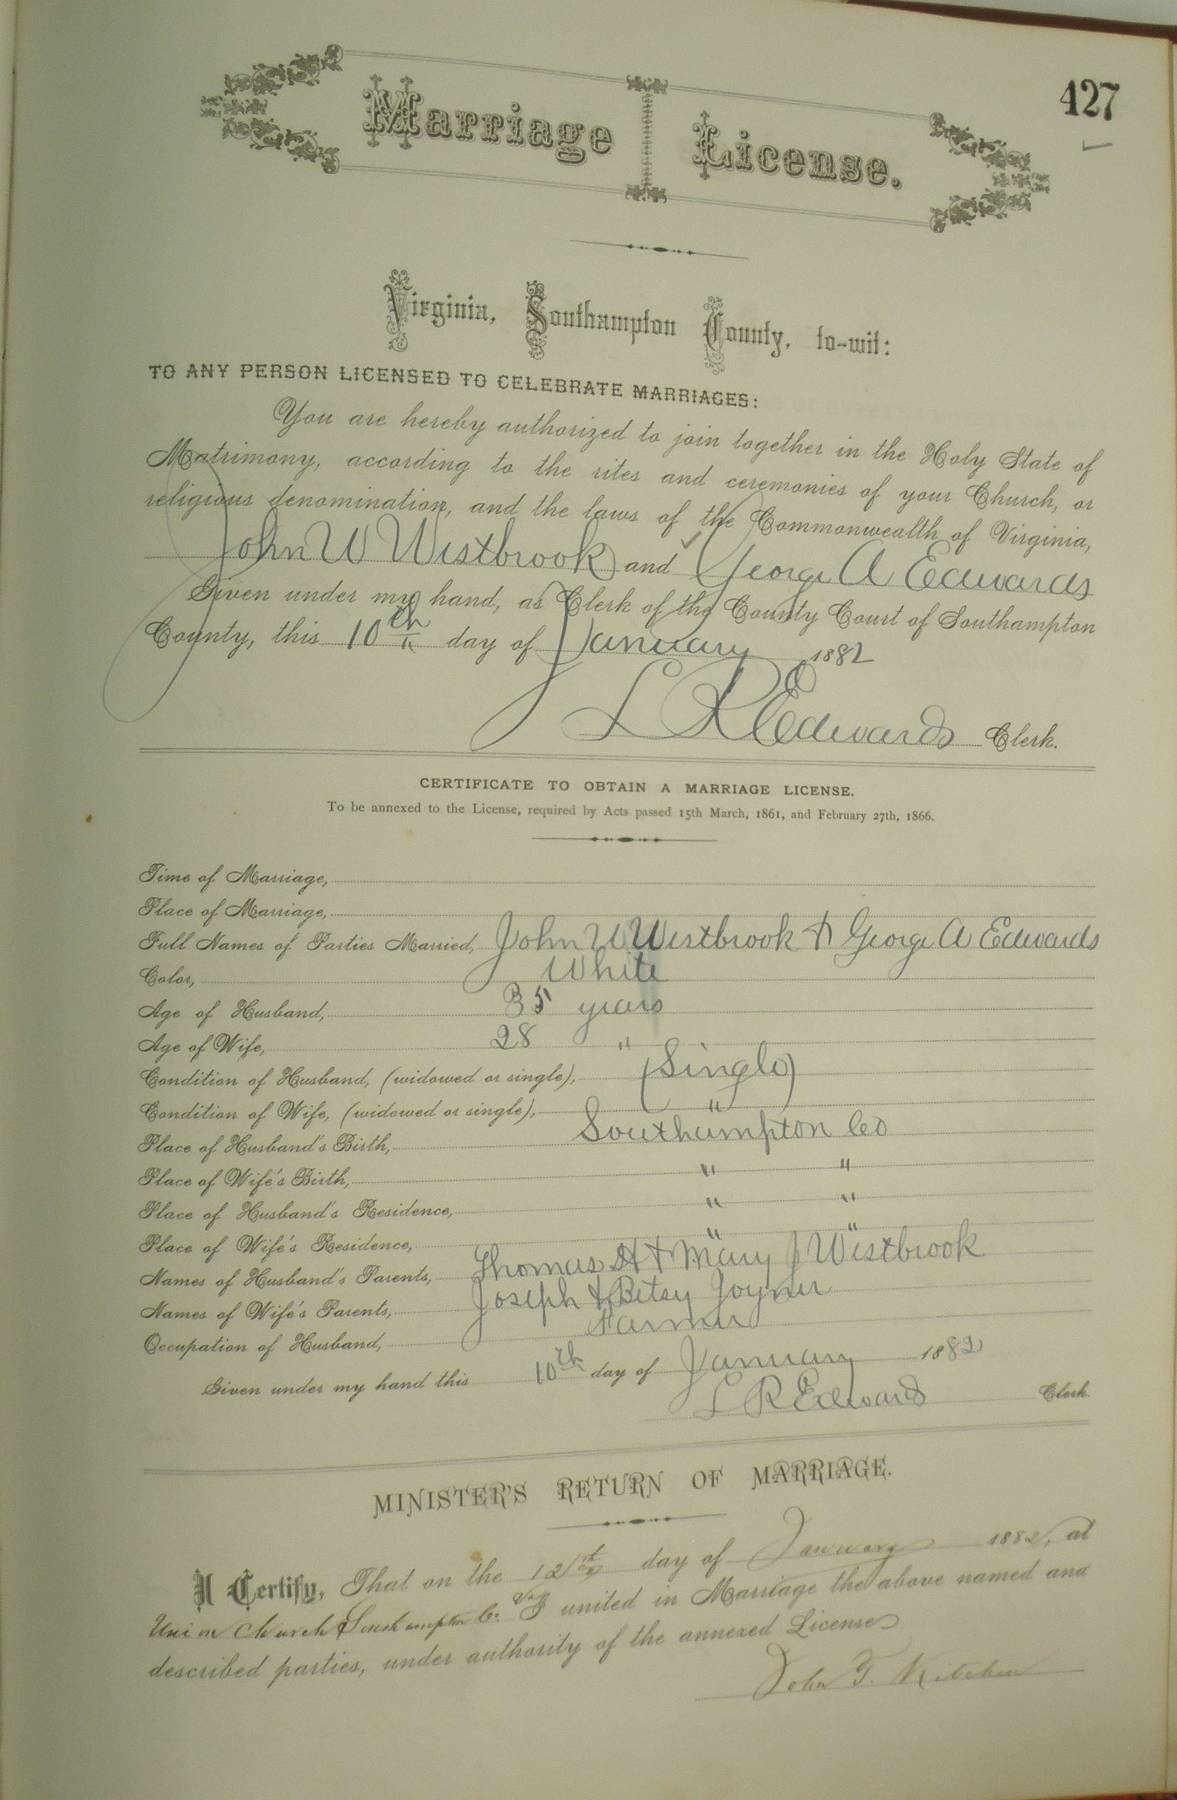 427
Marriage License.
Virginia, Southampton County, to-wit:
TO ANY PERSON LICENSED TO CELEBRATE MARRIAGES:
You are hereby authorized to join together in the Holy State of
Matrimony, according to the rites and ceremonies of your Church, or
religious denomination, and the laws of the Commonwealth of Virginia,
John W Westbrook and George A Edwards
Given under my hand, as Clerk of the County Court of Southampton
County, this 10th day of January 1882
L R Edwards Clerk.
CERTIFICATE TO OBTAIN A MARRIAGE LICENSE.
To be annexed to the License, required by Acts passed 15th March, 1861, and February 27th, 1866.
Time of Marriage,
Place of Marriage,
Full Names of Parties Married, John W Westbrook & George A Edwards
Color, White
Age of Husband, 35 years
Age of Wife, 28 "
Condition of Husband, (widowed or single), (Single)
Condition of Wife, (widowed or single), "
Place of Husband's Birth, Southampton Co
Place of Wife's Birth, " "
Place of Husband's Residence, " "
Place of Wife's Residence, " "
Names of Husband's Parents, Thomas H & Mary J Westbrook
Names of Wife's Parents, Joseph & Betsy Joyner
Occupation of Husband, Farmer
Given under my hand this 10th day of January 1882
L R Edwards Clerk.
MINISTER'S RETURN OF MARRIAGE.
I Certify, That on the 12th day of January 1882, at
Union Church Southampton Co. Va I united in Marriage the above named and
described parties, under authority of the annexed License
John F. Kitchen